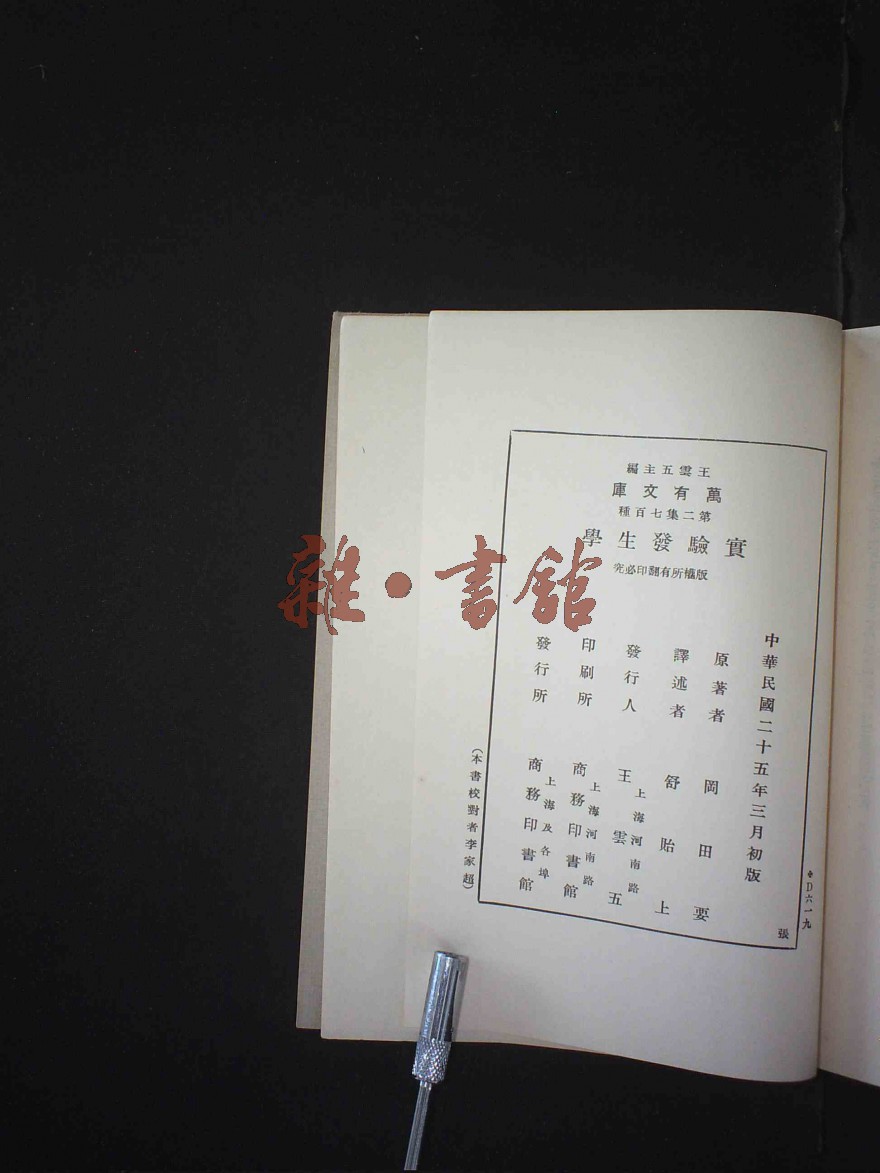 王雲五主編
萬有文庫
第二集七百種
實驗發生學
版權所有翻印必究
中華民國二十五年三月初版
原著者 岡田要
譯述者 舒貽上
發行人 王雲五
上海河南路
印刷所 商務印書館
上海河南路
發行所 商務印書館
上海及各埠
(本書校對者李家超)
六一九
張
雜·書館